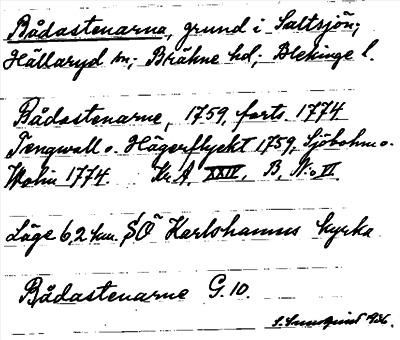 Bådastenarna, grund i Saltsjön;
Hällaryd sn; Bräkne hd; Blekinge l.
Bådastenarne, 1759, forts. 1774
Hägerflyckt 1759, Sjöbohm o.
1774. Kr. A. XXIV, B, No VI
Läge 6,2 km. SO Karlshamns kyrka
Bådastenarne G. 10.